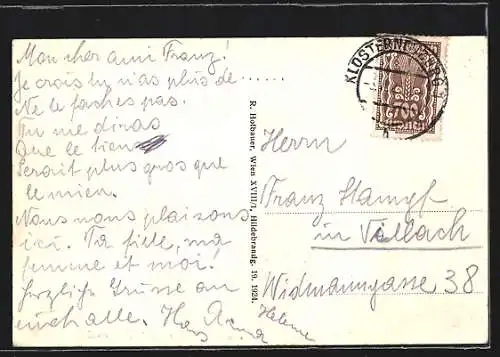 Mon cher ami Franz!
Je crois tu n'as plus de ......
Ne te faches pas.
Tu me diras
Que le tien
Serait plus gros que
le mien.
Nous nous plaisons
ici. Ta fille, ma
femme et moi!
Herzliche Grüsse an
euch alle. Hans Anna
Helene
R. Holbauer, Wien XVIII/1, Hildebrandg. 19. 1924.
KLOSTERNEUBURG
700
Herrn
Franz Stampf
in Villach
Widmanngasse 38